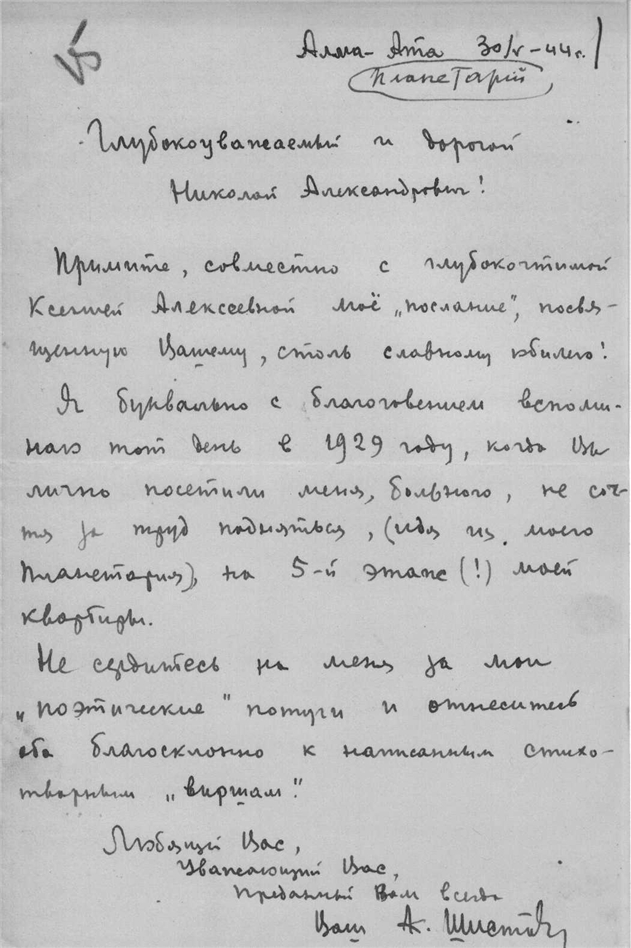 Алма-Ата 30/V-44 г.
Планетарий
Глубокоуважаемый и дорогой
Николай Александрович!
Примите, совместно с глубокочтимой
Ксенией Алексеевной моё „послание", посвя-
щенную Вашему, столь славному юбилею!
Я буквально с благоговением вспоми-
наю тот день в 1929 году, когда Вы
лично посетили меня, больного, не соч-
тя за труд подняться, (идя из моего
Планетария), на 5-й этаж (!) моей
квартиры.
Не сердитесь на меня за мои
„поэтические" потуги и отнеситесь
оба благосклонно к написанным стихо-
творным „виршам".
Любящий Вас,
Уважающий Вас,
Преданный Вам всегда
Ваш А.